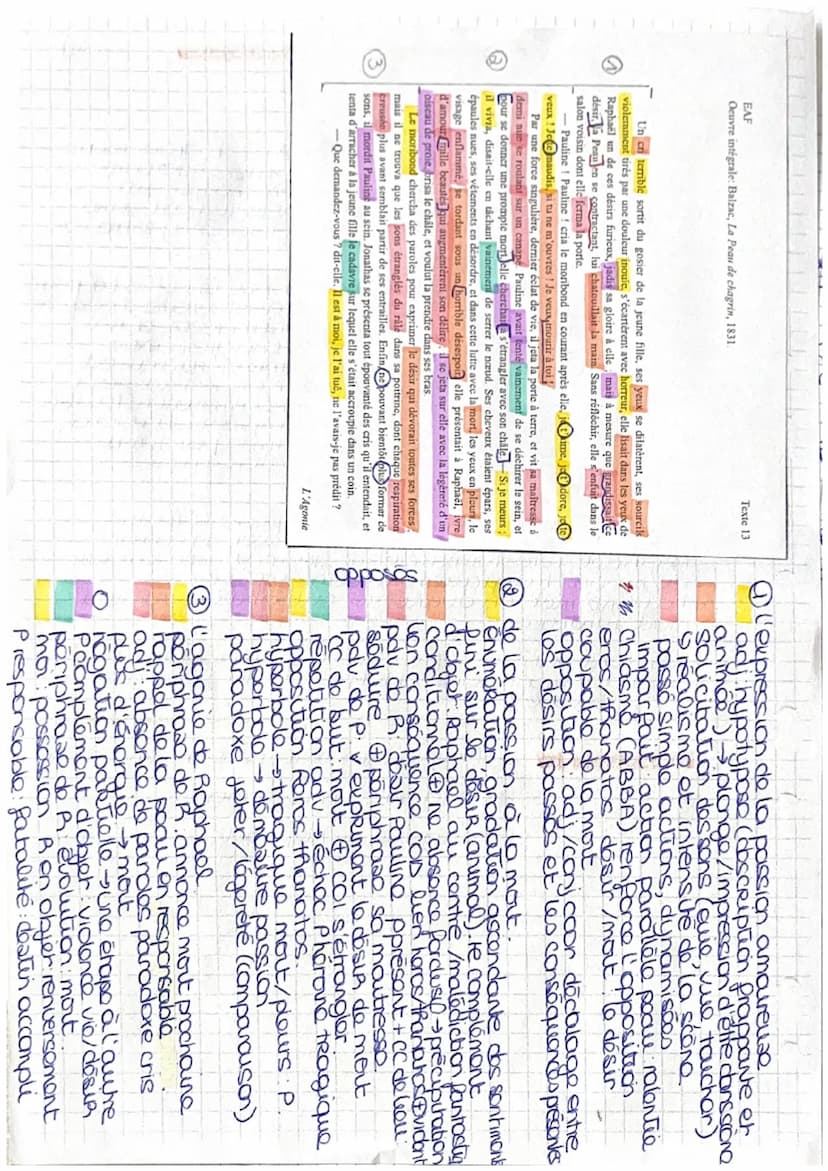 EAF
Texte 13
Oeuvre intégrale: Balzac, La Peau de chagrin, 1831.
①
②
③
Un cri terrible sortit du gosier de la jeune fille, ses yeux se dilatèrent, ses sourcils
violemment tirés par une douleur inouïe, s'écartèrent avec horreur, elle lisait dans les yeux de
Raphaël un de ces désirs furieux, jadis sa gloire à elle ; mais à mesure que grandissait ce
désir, la Peau en se contractant, lui chatouillait la main. Sans réfléchir, elle s'enfuit dans le
salon voisin dont elle ferma la porte.
— Pauline ! Pauline ! cria le moribond en courant après elle, je t'aime, je t'adore, je te
veux ! Je te maudis, si tu ne m'ouvres ! Je veux mourir à toi !
Par une force singulière, dernier éclat de vie, il jeta la porte à terre, et vit sa maîtresse à
demi nue se roulant sur un canapé. Pauline avait tenté vainement de se déchirer le sein, et
pour se donner une prompte mort, elle cherchait à s'étrangler avec son châle. — Si je meurs ;
il vivra, disait-elle en tâchant vainement de serrer le nœud. Ses cheveux étaient épars, ses
épaules nues, ses vêtements en désordre, et dans cette lutte avec la mort, les yeux en pleurs, le
visage enflammé, se tordant sous un horrible désespoir, elle présentait à Raphaël, ivre
d'amour, mille beautés qui augmentèrent son délire ; il se jeta sur elle avec la légèreté d'un
oiseau de proie, brisa le châle, et voulut la prendre dans ses bras.
Le moribond chercha des paroles pour exprimer le désir qui dévorait toutes ses forces ;
mais il ne trouva que les sons étranglés du râle dans sa poitrine, dont chaque respiration
creusée plus avant semblait partir de ses entrailles. Enfin, ne pouvant bientôt plus former de
sons, il mordit Pauline au sein. Jonathas se présenta tout épouvanté des cris qu'il entendait, et
tenta d'arracher à la jeune fille le cadavre sur lequel elle s'était accroupie dans un coin.
— Que demandez-vous ? dit-elle. Il est à moi, je l'ai tué, ne l'avais-je pas prédit ?
L'Agonie
① l'expression de la passion amoureuse
adj : hypotypose (description frappante et
animée) → plonge/impression d'être dans scène
sollicitation des sens (ouïe, vue, toucher)
↳ réalisme et intensité de la scène
passé simple actions, dynamisées
imparfait action parallèle peau : ralentie
Chiasme (ABBA) renforce l'opposition
eros/thanatos désir/mort : le désir
coupable de la mort
opposition : adj/conj coor décalage entre
les désirs passés et les conséquences présentes
② de la passion à la mort.
Énumération, gradation ascendante des sentiments
fini sur le désir (animal). le complément
d'objet Raphaël au centre /malédiction fantastiq
conditionnel ⊕ ne absence favdusf → précipitation
lien conséquence COD lien Heros/thanatos ⊕ vident
pdv de R : désir Pauline ppésent + CC de lieu
séduire ⊕ périphrase sa maitresse
opposés
pdv de P. v expriment le désir de mort
CC de but : mort ⊕ COI s'étrangler
répétition adv → échec Phéroïne tragique
opposition Heros thanatos.
hyperbole → tragique mort/pleurs : P.
hyperbole → démesure passion
paradoxe jeter/légèreté (comparaison)
③ l'agonie de Raphaël
périphrase de R. annonce mort prochaine
rappel de la peau en responsable
adj : absence de paroles paradoxe cris
plus d'énergie → mort
négation partielle → une étape à l'autre
P complément d'objet : violence vie/désir
périphrase de R. évolution : mort.
moi : possession R en objet, renversement
P responsable : fatalité : destin accompli